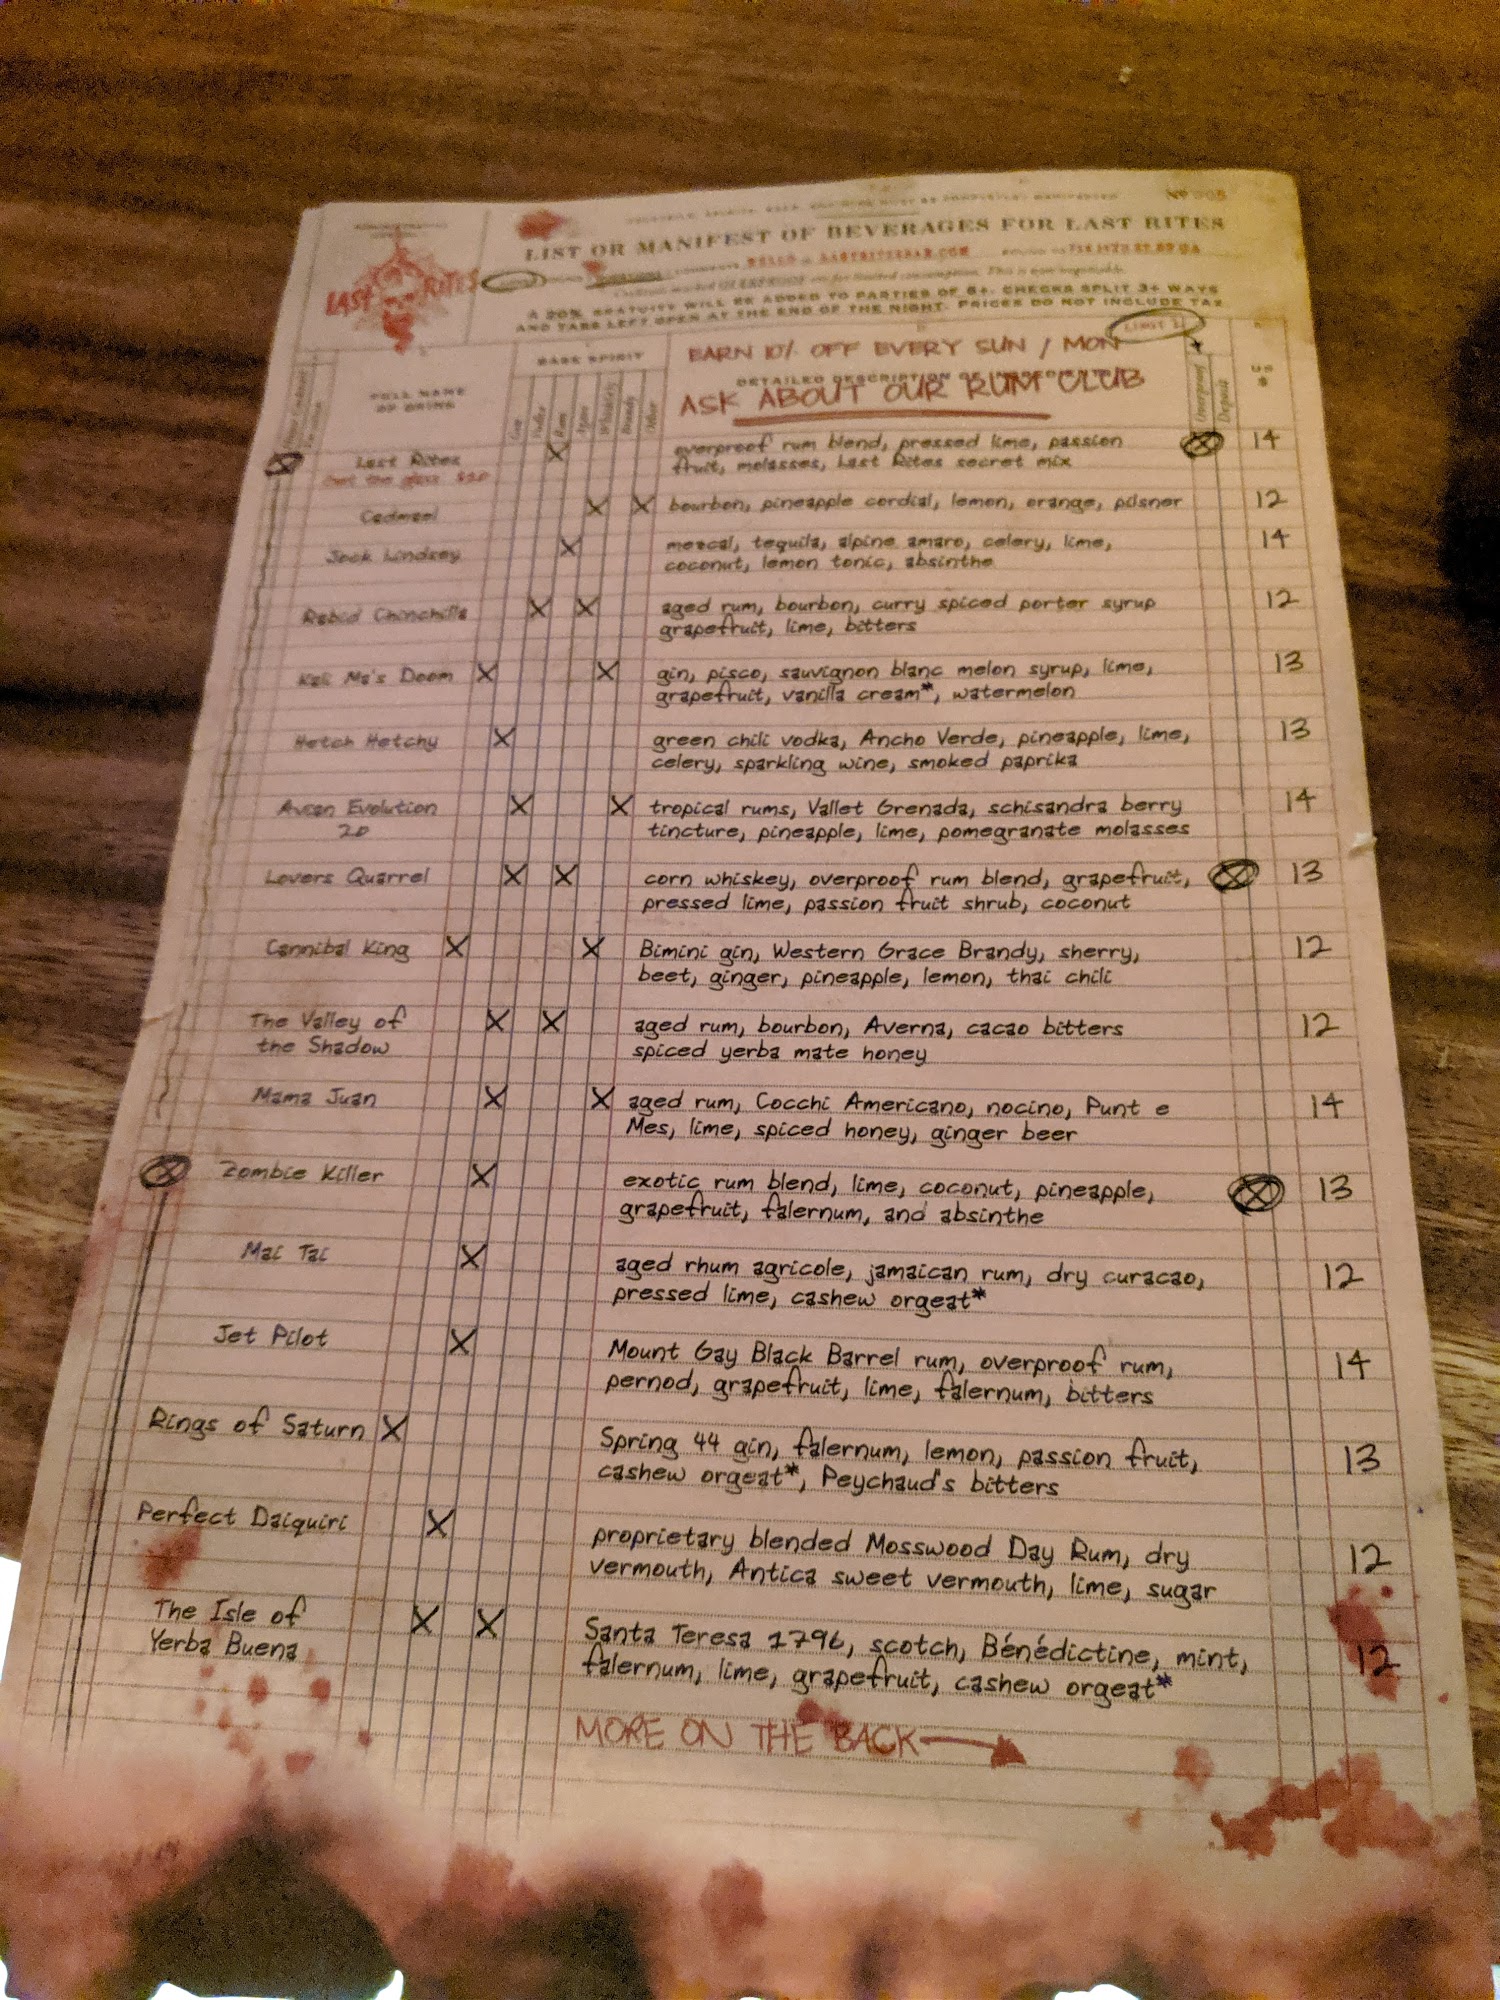 Nº
LIST OR MANIFEST OF BEVERAGES FOR LAST RITES
LAST RITES
A 20% GRATUITY WILL BE ADDED TO PARTIES OF 6+. CHECKS SPLIT 3+ WAYS
AND TABS LEFT OPEN AT THE END OF THE NIGHT. PRICES DO NOT INCLUDE TAX
LIMIT
EARN 10% OFF EVERY SUN / MON
ASK ABOUT OUR RUM CLUB
BASE SPIRIT
FULL NAME
OF DRINK
DETAILED DESCRIPTION OF
Gin
Vodka
Rum
Agave
Whiskey
Brandy
Other
Overproof
Deposit
US
$
Last Rites X overproof rum blend, pressed lime, passion 14
fruit, molasses, Last Rites secret mix
X X bourbon, pineapple cordial, lemon, orange, pilsner 12
Jock Lindsey X mezcal, tequila, alpine amaro, celery, lime, 14
coconut, lemon tonic, absinthe
Rabid Chinchilla X X aged rum, bourbon, curry spiced porter syrup 12
grapefruit, lime, bitters
Kali Ma's Doom X X gin, pisco, sauvignon blanc melon syrup, lime, 13
grapefruit, vanilla cream*, watermelon
Hetch Hetchy X green chili vodka, Ancho Verde, pineapple, lime, 13
celery, sparkling wine, smoked paprika
Evolution X X tropical rums, Vallet Grenada, schisandra berry 14
20 tincture, pineapple, lime, pomegranate molasses
Lovers Quarrel X X corn whiskey, overproof rum blend, grapefruit, X 13
pressed lime, passion fruit shrub, coconut
Cannibal King X X Bimini gin, Western Grace Brandy, sherry, 12
beet, ginger, pineapple, lemon, thai chili
The Valley of X X aged rum, bourbon, Averna, cacao bitters 12
the Shadow spiced yerba mate honey
Mama Juan X X aged rum, Cocchi Americano, nocino, Punt e 14
Mes, lime, spiced honey, ginger beer
X Zombie Killer X exotic rum blend, lime, coconut, pineapple, X 13
grapefruit, falernum, and absinthe
Mai Tai X aged rhum agricole, jamaican rum, dry curacao, 12
pressed lime, cashew orgeat*
Jet Pilot X Mount Gay Black Barrel rum, overproof rum, 14
pernod, grapefruit, lime, falernum, bitters
Rings of Saturn X Spring 44 gin, falernum, lemon, passion fruit, 13
cashew orgeat*, Peychaud's bitters
Perfect Daiquiri X proprietary blended Mosswood Day Rum, dry 12
vermouth, Antica sweet vermouth, lime, sugar
The Isle of X X Santa Teresa 1796, scotch, Bénédictine, mint, 12
Yerba Buena falernum, lime, grapefruit, cashew orgeat*
MORE ON THE BACK